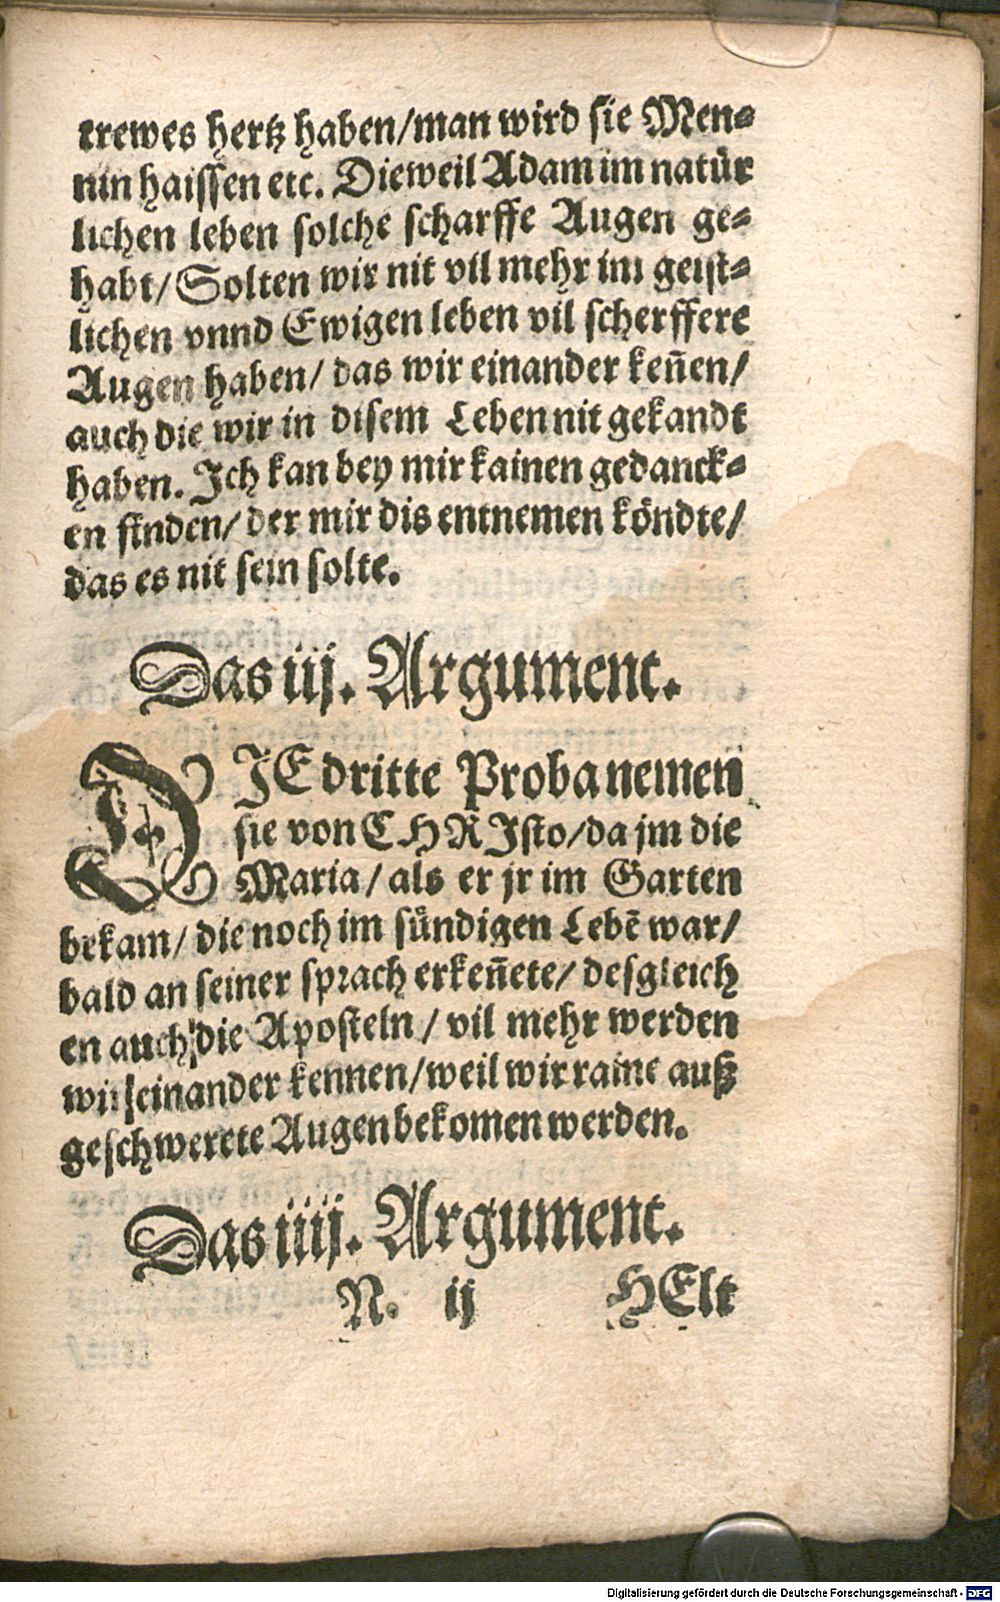 trewes hertz haben/man wird sie Men⸗
nin haissen etc. Dieweil Adam im natür
lichen leben solche scharffe Augen ge⸗
habt/Solten wir nit vil mehr im geist⸗
lichen vnnd Ewigen leben vil scherffere
Augen haben/ das wir einander keñen/
auch die wir in disem Leben nit gekandt
haben. Ich kan bey mir kainen gedanck⸗
en finden/ der mir dis entnemen köndte/
das es nit sein solte.
Das iij. Argument.
DIE dritte Proba nemen
sie von CHRIsto/da jm die
Maria/ als er jr im Garten
bekam/ die noch im sündigen Lebẽ war/
bald an seiner sprach erkeñete/ desgleich
en auch die Aposteln/ vil mehr werden
wir einander kennen/weil wir raine auß
geschwerete Augen bekomen werden.
Das iiij. Argument.
N. ij HElt
Digitalisierung gefördert durch die Deutsche Forschungsgemeinschaft - DFG